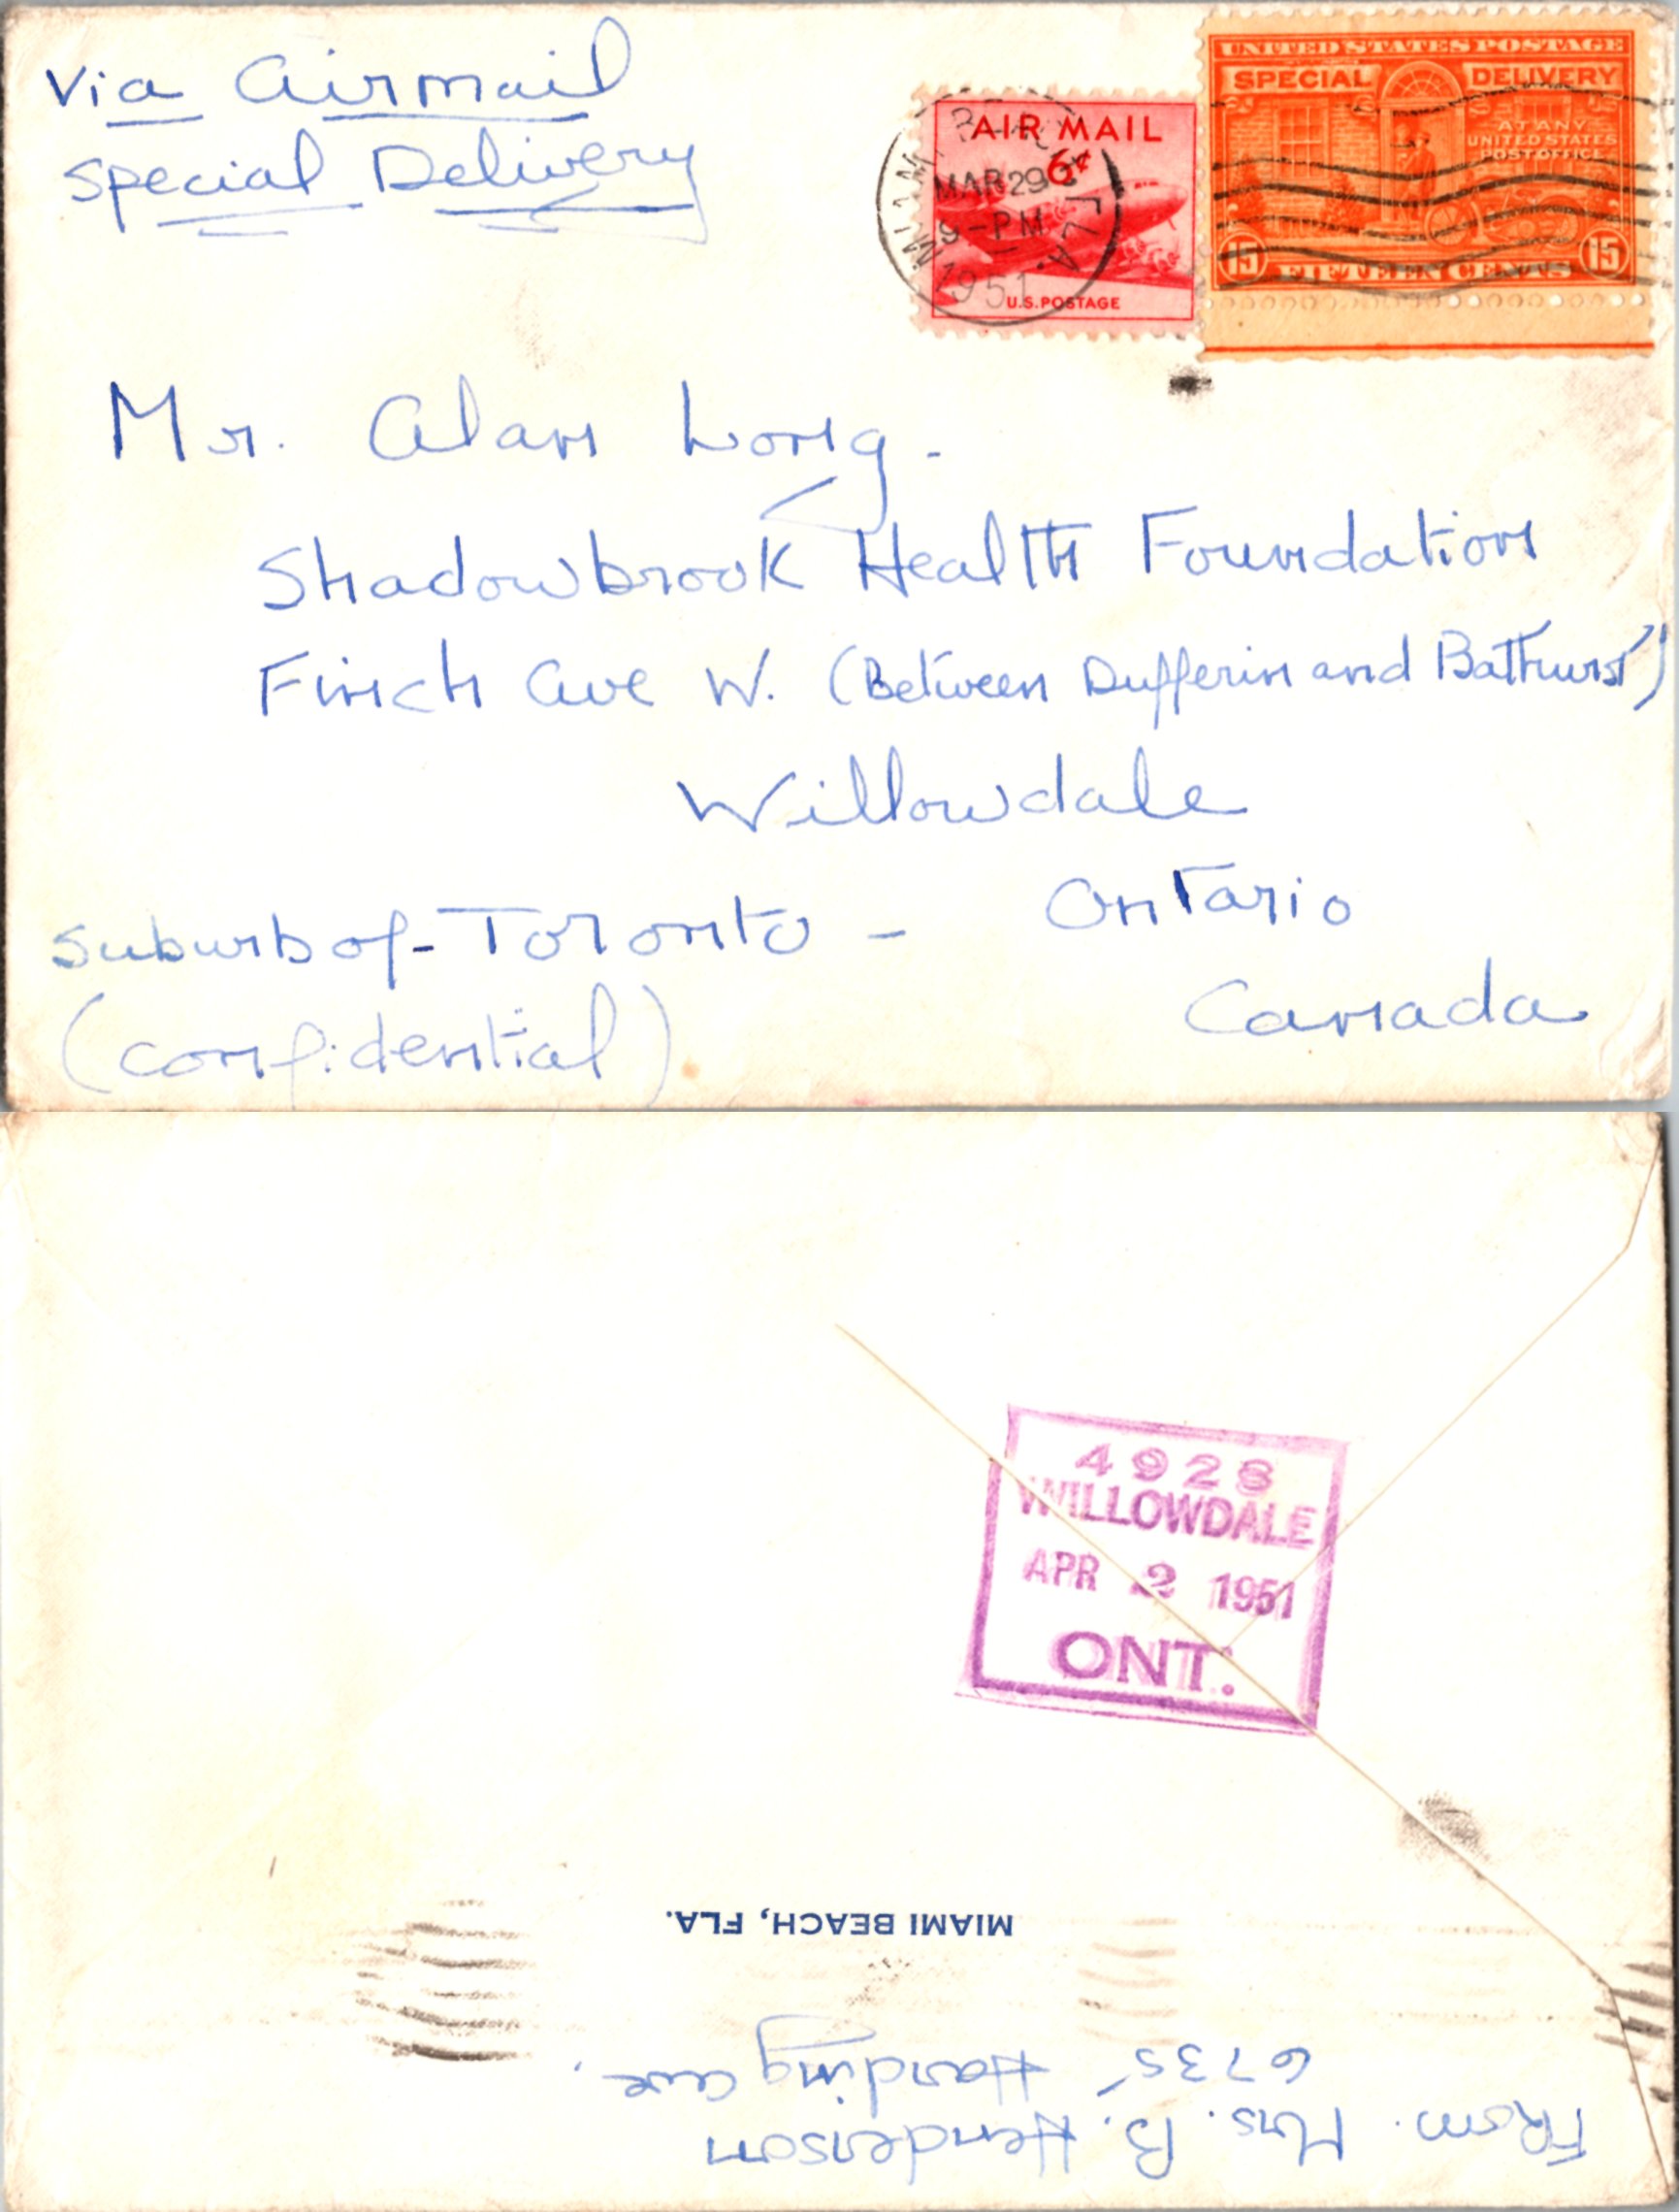 Via Airmail
Special Delivery
UNITED STATES POSTAGE
SPECIAL DELIVERY
AT ANY
UNITED STATES
POST OFFICE
15 FIFTEEN CENTS 15
AIR MAIL
6¢
U.S. POSTAGE
MIAMI FLA.
MAR 29
9-PM
1951
Mr. Alan Long.
Shadowbrook Health Foundation
Finch Ave W. (Between Dufferin and Bathurst)
Willowdale
Suburb of - Toronto - Ontario
(Confidential) Canada
4928
WILLOWDALE
APR 2 1951
ONT.
From. Mrs. B. Henderson
6735 Harding Ave.
MIAMI BEACH, FLA.